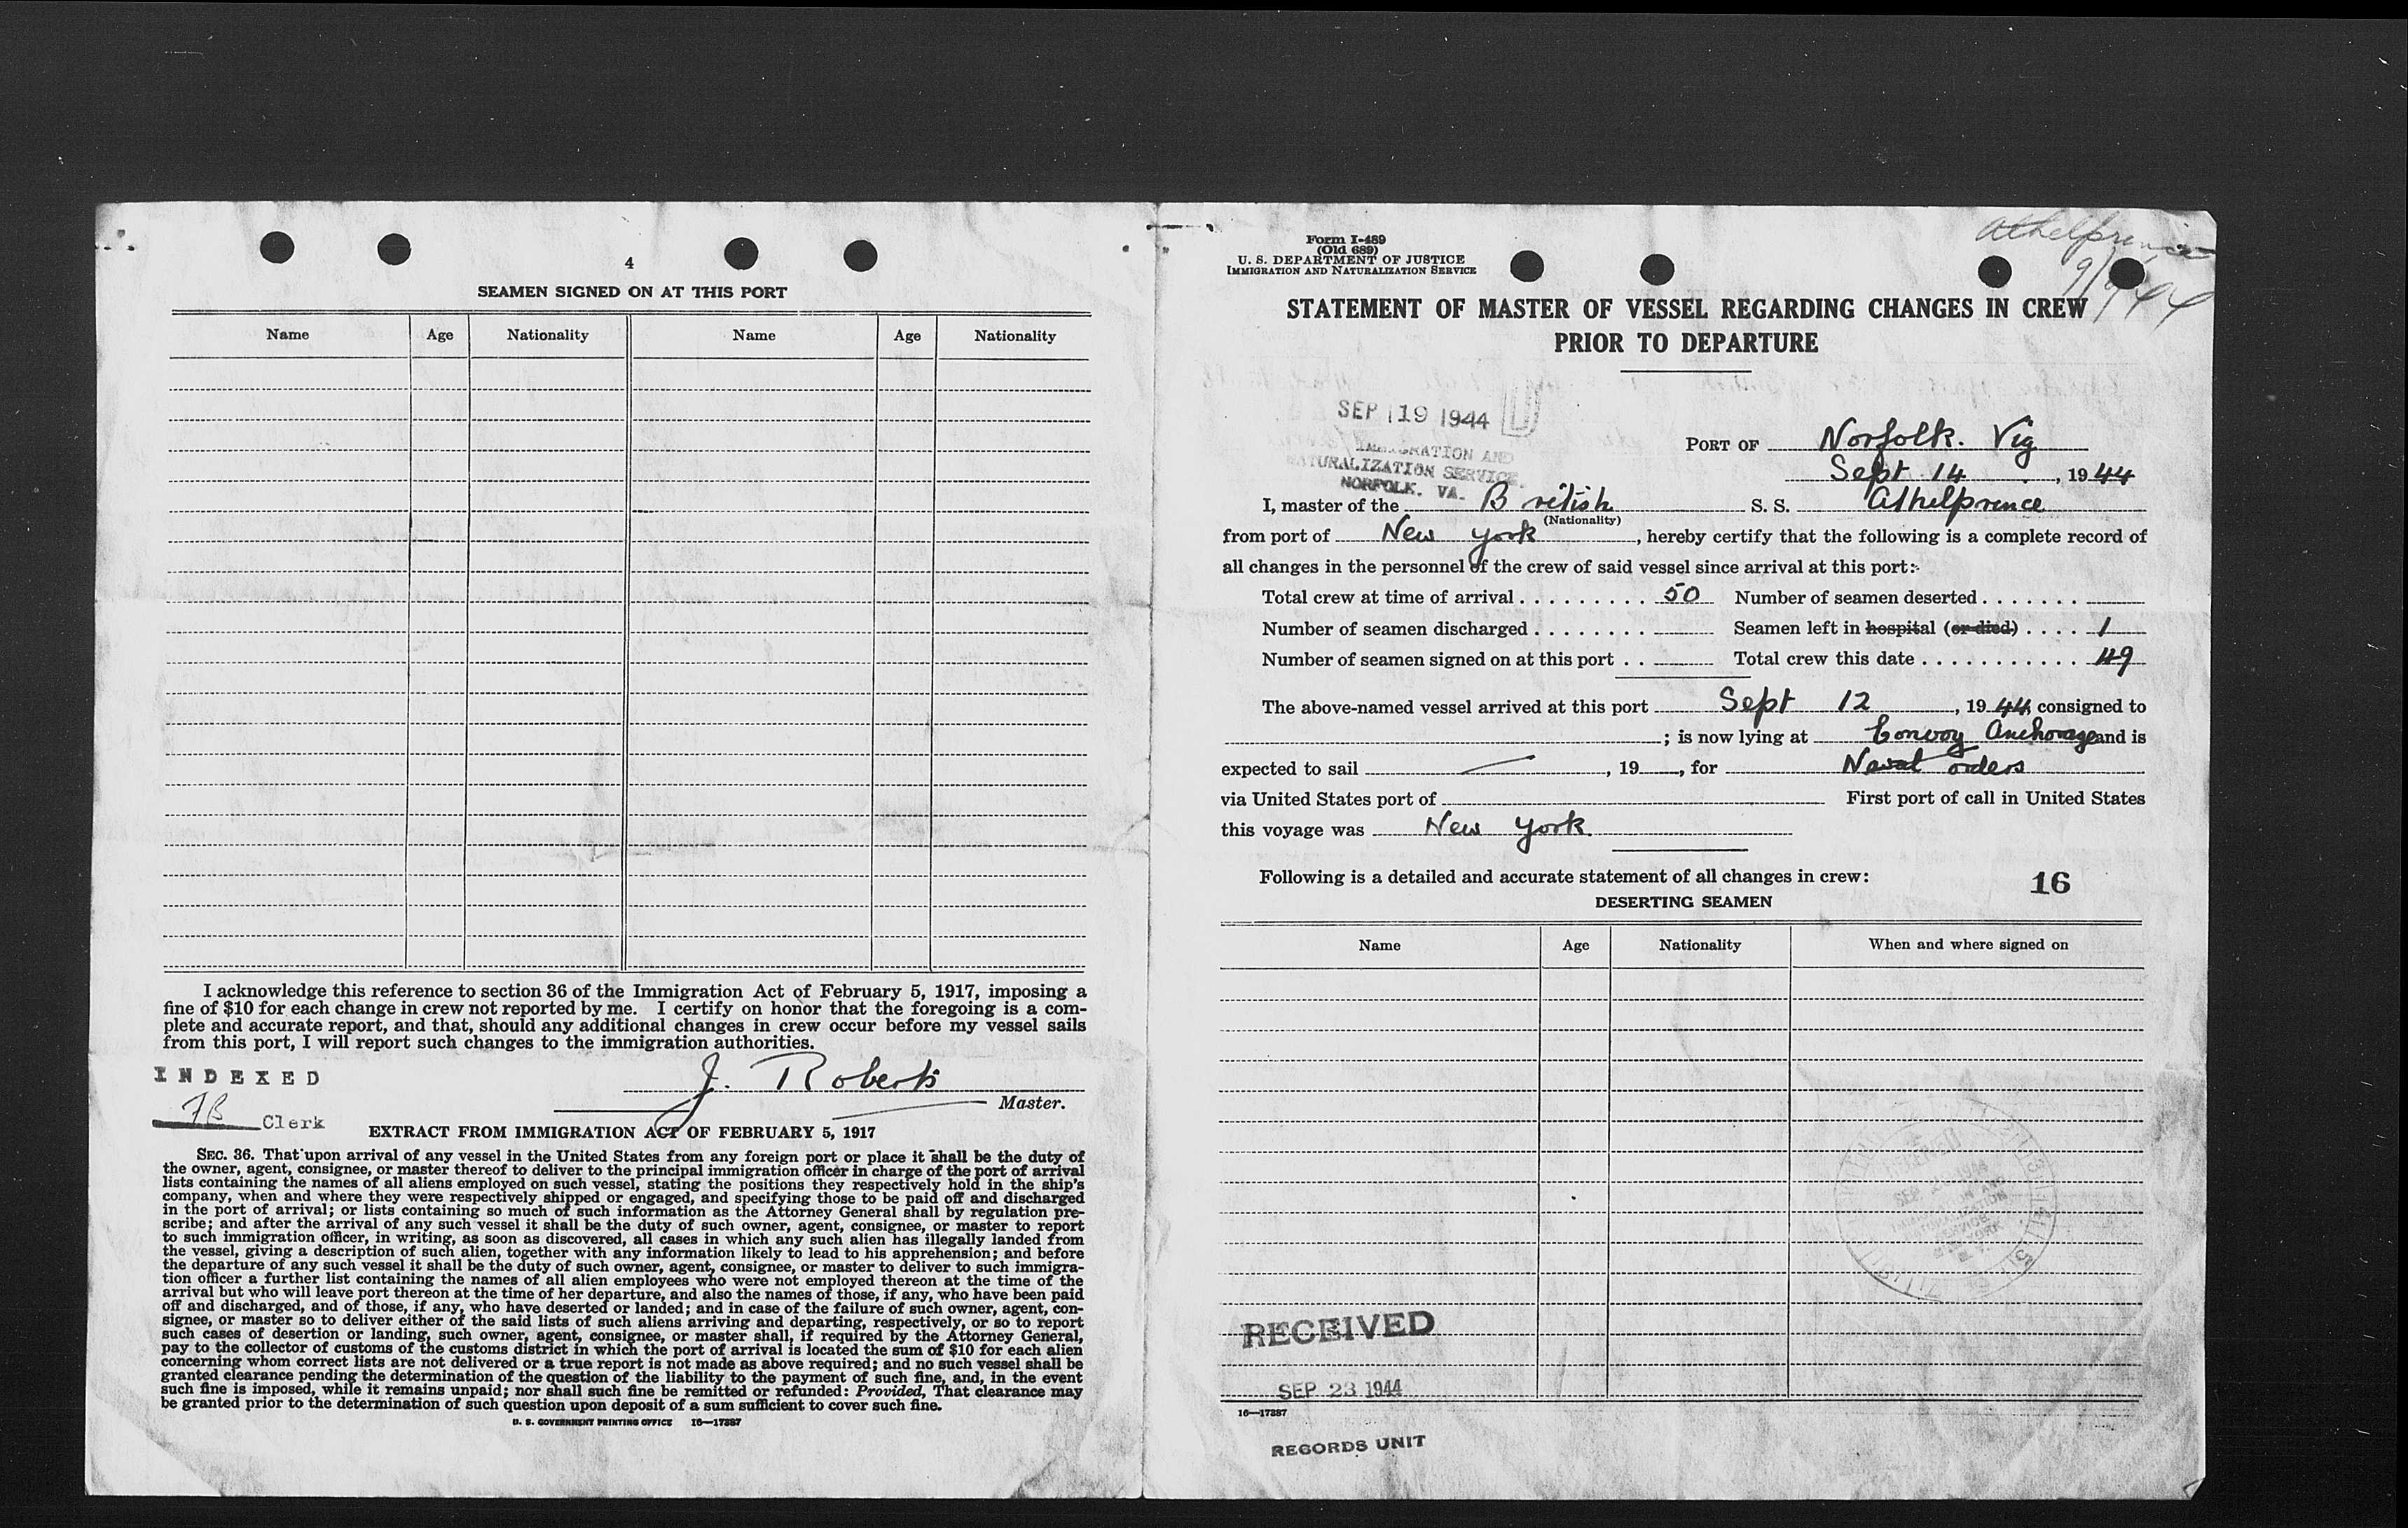 4
SEAMEN SIGNED ON AT THIS PORT
Name Age Nationality Name Age Nationality
I acknowledge this reference to section 36 of the Immigration Act of February 5, 1917, imposing a
fine of $10 for each change in crew not reported by me. I certify on honor that the foregoing is a com-
plete and accurate report, and that, should any additional changes in crew occur before my vessel sails
from this port, I will report such changes to the immigration authorities.
INDEXED
J. Roberts
Master.
FB Clerk
EXTRACT FROM IMMIGRATION ACT OF FEBRUARY 5, 1917
SEC. 36. That upon arrival of any vessel in the United States from any foreign port or place it shall be the duty of
the owner, agent, consignee, or master thereof to deliver to the principal immigration officer in charge of the port of arrival
lists containing the names of all aliens employed on such vessel, stating the positions they respectively hold in the ship's
company, when and where they were respectively shipped or engaged, and specifying those to be paid off and discharged
in the port of arrival; or lists containing so much of such information as the Attorney General shall by regulation pre-
scribe; and after the arrival of any such vessel it shall be the duty of such owner, agent, consignee, or master to report
to such immigration officer, in writing, as soon as discovered, all cases in which any such alien has illegally landed from
the vessel, giving a description of such alien, together with any information likely to lead to his apprehension; and before
the departure of any such vessel it shall be the duty of such owner, agent, consignee, or master to deliver to such immigra-
tion officer a further list containing the names of all alien employees who were not employed thereon at the time of the
arrival but who will leave port thereon at the time of her departure, and also the names of those, if any, who have been paid
off and discharged, and of those, if any, who have deserted or landed; and in case of the failure of such owner, agent, con-
signee, or master so to deliver either of the said lists of such aliens arriving and departing, respectively, or so to report
such cases of desertion or landing, such owner, agent, consignee, or master shall, if required by the Attorney General,
pay to the collector of customs of the customs district in which the port of arrival is located the sum of $10 for each alien
concerning whom correct lists are not delivered or a true report is not made as above required; and no such vessel shall be
granted clearance pending the determination of the question of the liability to the payment of such fine, and, in the event
such fine is imposed, while it remains unpaid; nor shall such fine be remitted or refunded: Provided, That clearance may
be granted prior to the determination of such question upon deposit of a sum sufficient to cover such fine.
U. S. GOVERNMENT PRINTING OFFICE 16—17887
Form I-489
(Old 689)
U. S. DEPARTMENT OF JUSTICE
IMMIGRATION AND NATURALIZATION SERVICE
Athelprince
STATEMENT OF MASTER OF VESSEL REGARDING CHANGES IN CREW
PRIOR TO DEPARTURE
SEP 19 1944
IMMIGRATION AND
NATURALIZATION SERVICE
NORFOLK, VA.
PORT OF Norfolk. Vig
Sept 14, 1944
I, master of the British S. S. Athelprince
(Nationality)
from port of New York, hereby certify that the following is a complete record of
all changes in the personnel of the crew of said vessel since arrival at this port:
Total crew at time of arrival . . . . . . . . . . 50 Number of seamen deserted . . . . . . .
Number of seamen discharged . . . . . . . . Seamen left in hospital (or died) . . . . 1
Number of seamen signed on at this port . . Total crew this date . . . . . . . . . . . 49
The above-named vessel arrived at this port Sept 12, 1944, consigned to
; is now lying at Convoy Anchorage and is
expected to sail —, 19, for Naval orders
via United States port of First port of call in United States
this voyage was New York
Following is a detailed and accurate statement of all changes in crew: 16
DESERTING SEAMEN
Name Age Nationality When and where signed on
RECEIVED
SEP 23 1944
16—17887
RECORDS UNIT